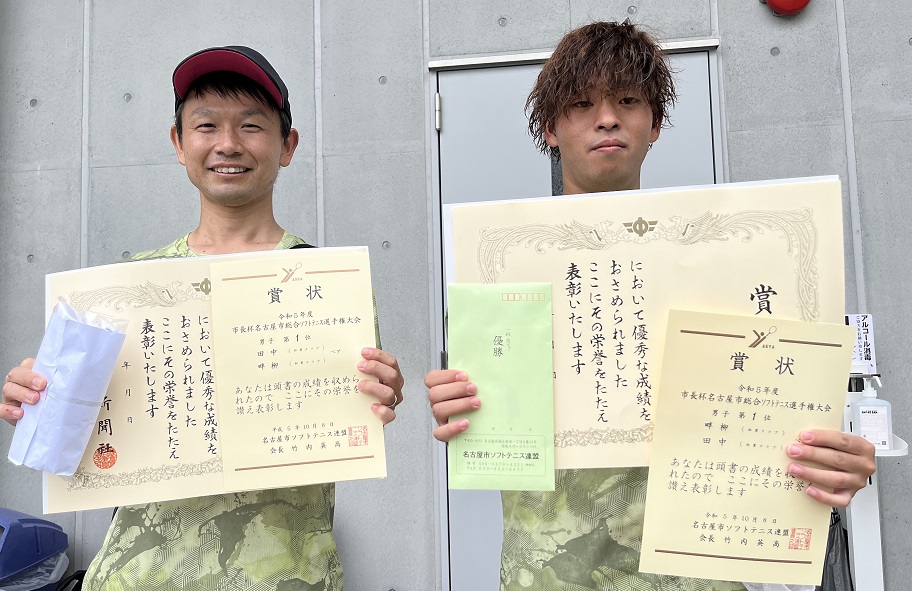 において優秀な成績を
おさめられました
ここにその栄誉をたたえ
表彰いたします
年 月 日
新聞社
賞 状
令和5年度
市長杯名古屋市総合ソフトテニス選手権大会
男子 第1位
田中
ペア
畔柳
あなたは頭書の成績を収めら
れたので ここにその栄誉を
讃え表彰します
令和5年10月8日
名古屋市ソフトテニス連盟
会長 竹内英高
優勝
名古屋市ソフトテニス連盟
賞
において優秀な成績を
おさめられました
ここにその栄誉をたたえ
表彰いたします
賞 状
令和5年度
市長杯名古屋市総合ソフトテニス選手権大会
男子 第1位
畔柳
田中
あなたは頭書の成績を収
れたので ここにその栄
讃え表彰します
令和5年10月8日
名古屋市ソフトテニス連盟
会長 竹内英高
アルコール消毒